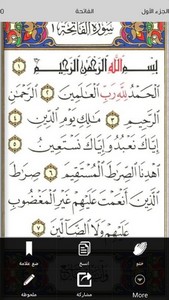 الجزء الأول
الفاتحة
سورة الفاتحة
بسم الله الرحمن الرحيم ١
الحمد لله رب العلمين ٢ الرحمن
الرحيم ٣ ملك يوم الدين ٤
إياك نعبد وإياك نستعين ٥
اهدنا الصرط المستقيم ٦ صرط
الذين أنعمت عليهم غير المغضوب
عليهم ولا الضالين ٧
ختم
نسخ
ضع علامة
More
مشاركة
ملحوظة